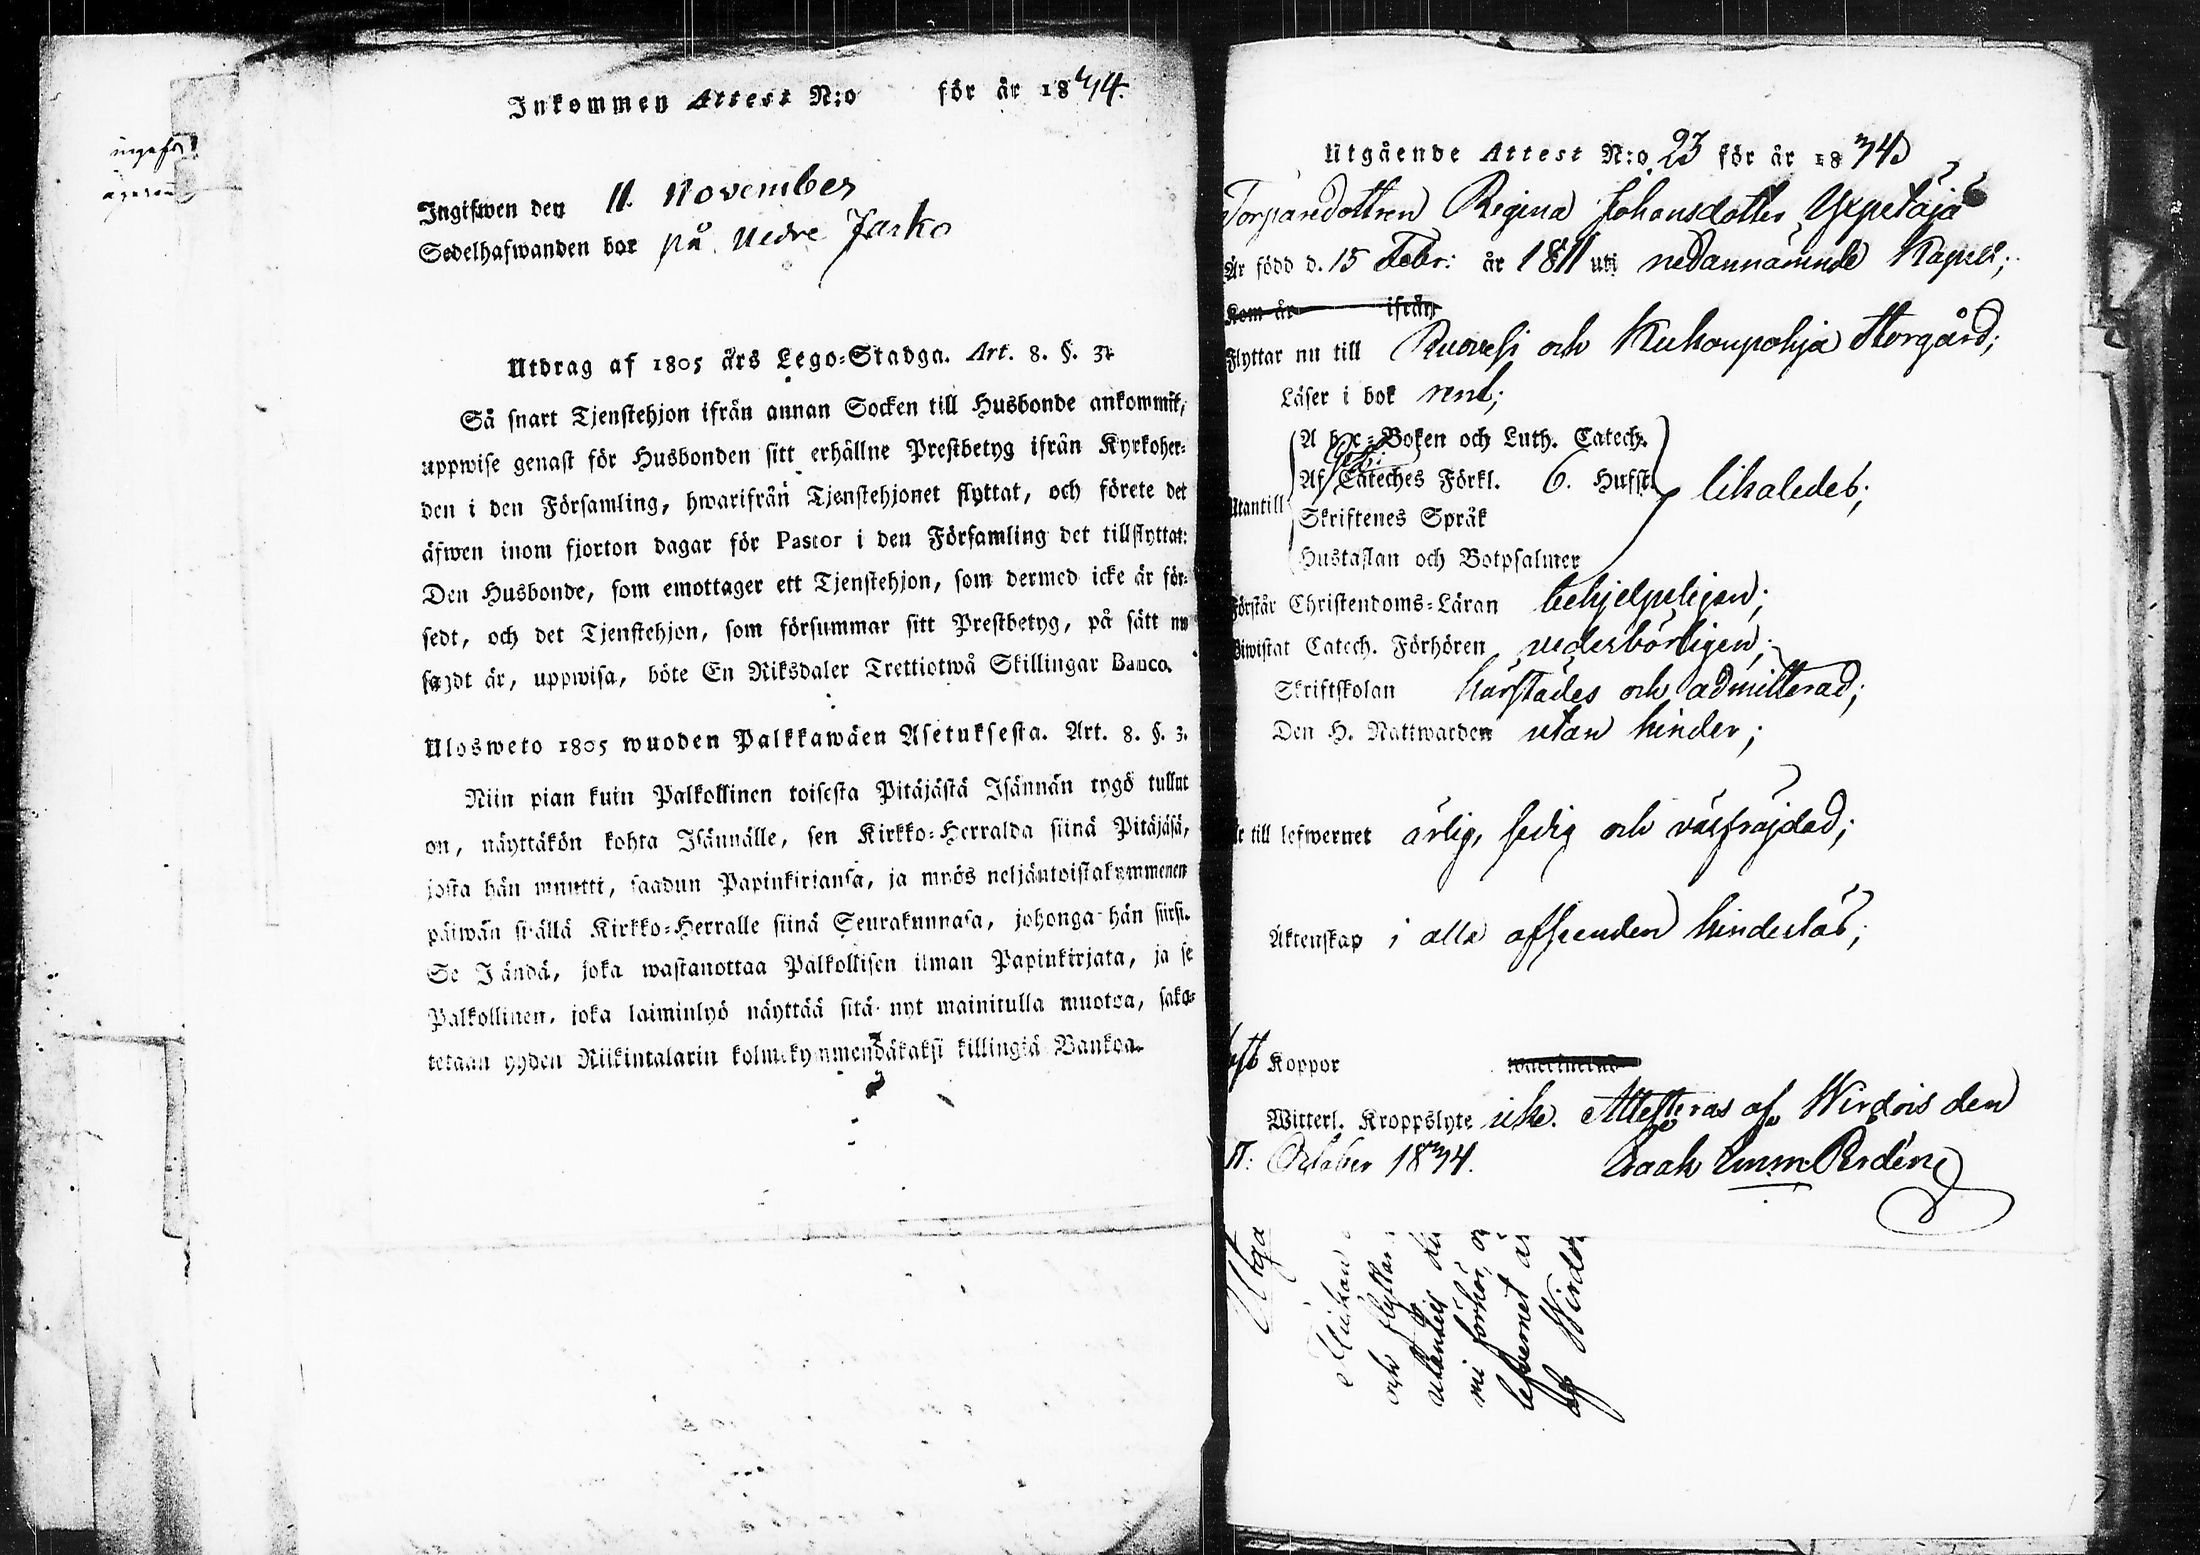 Inkommen Attest N:o för år 1834.
Ingifwen den 11. November
Sedelhafwanden bor på Nedre Jarko
Utdrag af 1805 års Lego-Stadga. Art. 8. §. 3.
Så snart Tjenstehjon ifrån annan Socken till Husbonde ankommit,
uppwise genast för Husbonden sitt erhållne Prestbetyg ifrån Kyrkoher-
den i den Församling, hwarifrån Tjenstehjonet flyttat, och förete det
äfwen inom fjorton dagar för Pastor i den Församling det tillflyttat:
Den Husbonde, som emottager ett Tjenstehjon, som dermed icke är för-
sedt, och det Tjenstehjon, som försummar sitt Prestbetyg, på sätt nu
sagdt är, uppwisa, böte En Riksdaler Trettiotwå Skillingar Banco.
Ulosweto 1805 wuoden Palkkawäen Asetuksesta. Art. 8. §. 3.
Niin pian kuin Palkollinen toisesta Pitäjästä Isännän tygö tullut
on, näyttäkön kohta Isännälle, sen Kirkko-Herralda siinä Pitäjäsä,
josta hän muutti, saadun Papinkirjansa, ja myös neljäntoistakymmenen
päiwän sisällä Kirkko-Herralle siinä Seurakunnasa, johonga hän siirsi.
Se Isändä, joka wastanottaa Palkollisen ilman Papinkirjata, ja se
Palkollinen, joka laiminlyö näyttää sitä nyt mainitulla muotoa, sako-
tetaan yhden Riikintalarin kolmekymmendäkaksi killingiä Bankoa.
Utgående Attest N:o 23 för år 1834
Torparedottren Regina Johansdotter Yxpetäjä
Är född d. 15 Febr: år 1811 uti nedannämnde Kapell;
Kom år ifrån
Flyttar nu till Ruovesi och Kukonpohja Storgård;
Läser i bok rent;
A b c-Boken och Luth. Catech.
Utantill Af Cateches Förkl. 6. Hufst. likaledes;
Skriftenes Språk
Hustaflan och Botpsalmer
Förstår Christendoms-Läran behjelpeligen;
Biwistat Catech. Förhören vederbörligen;
Skriftskolan härstädes och admitterad;
Den H. Nattwarden utan hinder;
Är till lefwernet ärlig, sedig och välfräjdad;
Äktenskap i alla afseenden hinderlös;
Koppor
Witterl. Kroppslyte icke. Attesteras af Wirdois den
11: October 1834. Isaak Emm: Rosdén
Utgå
och flyttar
utantill
lefvernet
af Wirdo